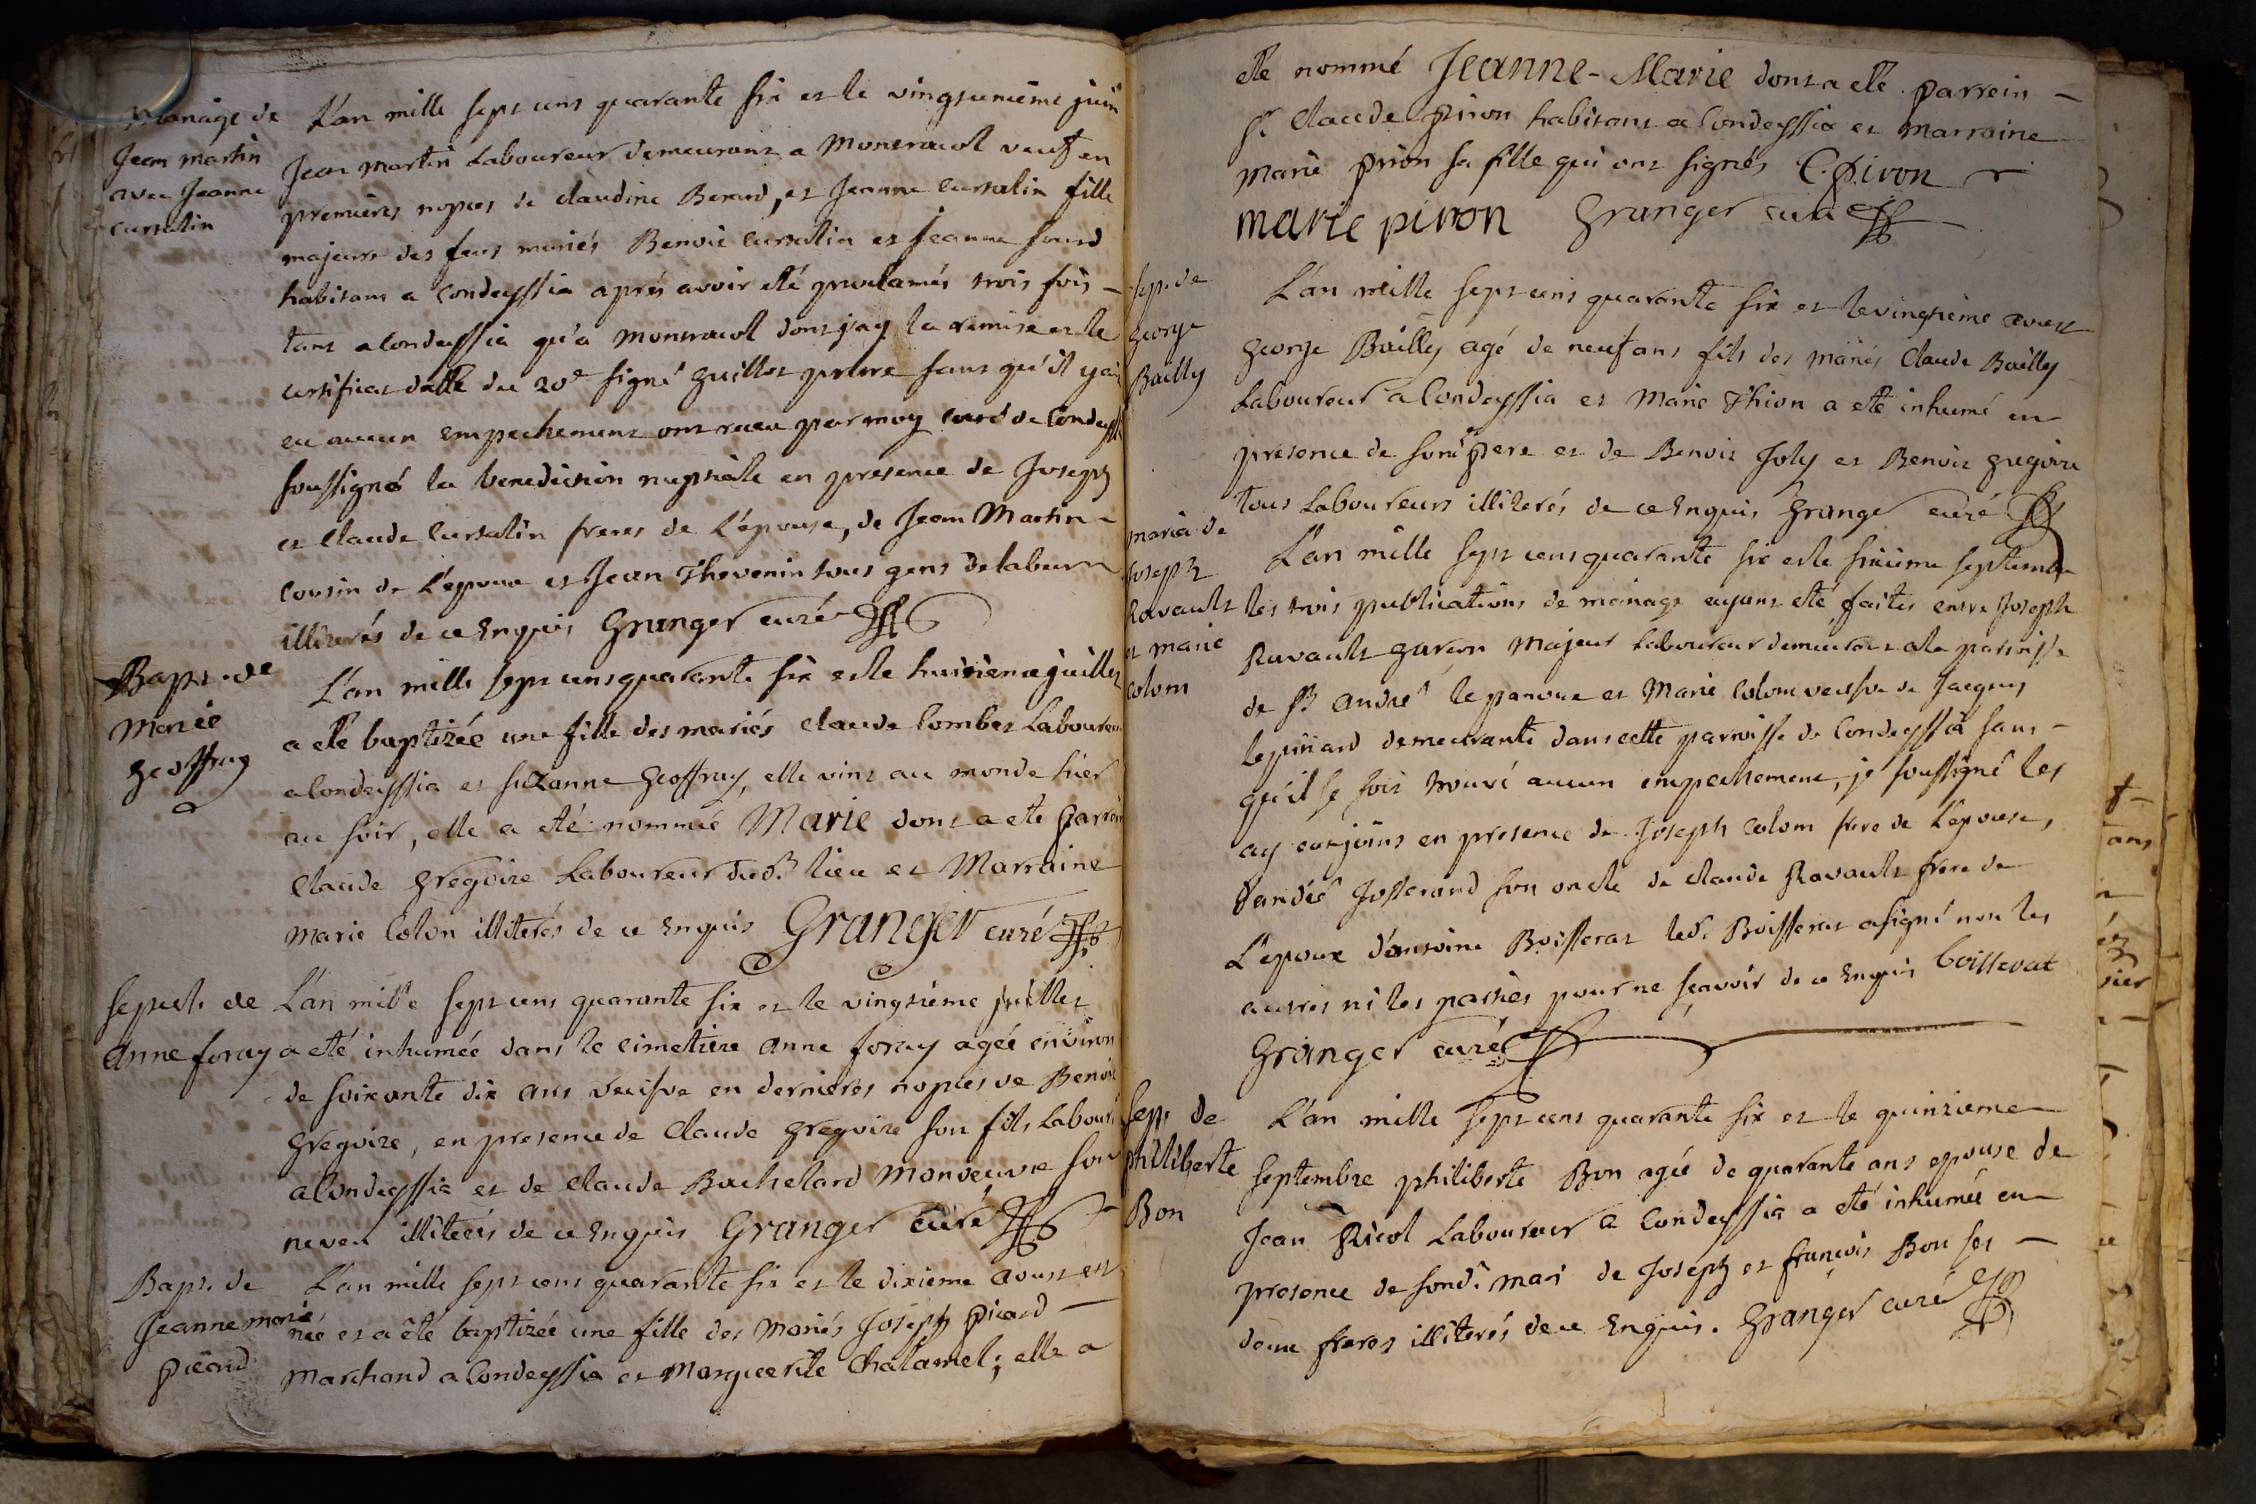 Mariage de
Jean martin
avec Jeanne
cursalin
L'an mille sept cens quarante six et le vingtunieme juin
Jean Martin Laboureur demeurant a Montracol veuf en
premieres nopces de claudine Berard, et Jeanne cursalin fille
majeure des feus mariés Benoit cursalin et jeanne
habitans a Condeyssia aprés avoir eté proclamés trois fois –
tant a Condeyssia qu'a Montracol dont j'ay la remise et le
certificat datté du 20e signé guillot pretre sans qu'il y ait
eu aucun empechement ont receu par moy curé de Condeyssia
soussigné la benediction nuptiale en presence de Joseph
et Claude Cursalin freres de L'epouse, de Jean Martin –
cousin de L'epoux et Jean Thevenin tous gens de labeur
illiterés de ce Enquis Granger curé
Bapt. de
Marie
geoffray
L'an mille sept cens quarante six et le huitieme juillet
a eté baptizée une fille des mariés claude Combet Laboureur
a Condeyssia et suzanne geoffray, elle vint au monde hier
au soir, elle a eté nommée Marie dont a ete parrein
Claude gregoire Laboureur dud. lieu et Marraine
Marie Colon illiterés de ce Enquis Granger curé
sepult. de
anne foray
L'an mille sept cens quarante six et le vingtieme juillet
a eté inhumée dans le cimetiere anne foray agée environ
de soixante dix ans veusve en dernieres nopces de Benoit
gregoire, en presence de Claude gregoire son fils Laboureur
a Condeyssia et de Claude Bachelard Manoeuvre son
neveu illiterés de ce Enquis Granger curé
Bapt. de
Jeanne marie
picard
L'an mille sept cens quarante six et le dixieme aoust est
née et a eté baptizée une fille des Mariés Joseph picard –
Marchand a Condeyssia et Marguerite Chalamel; elle a
eté nommé Jeanne-Marie dont a eté parrein –
sr. Claude Piron habitant a Condeyssia et marraine
marie piron sa fille qui ont signés C. piron
marie piron Granger curé
sep. de
george
Bailly
L'an mille sept cens quarante six et le vingtieme aoust
george Bailly agé de neuf ans fils des mariés Claude Bailly
Laboureur a Condeyssia et Marie Thion a eté inhumé en
presence de son pere et de Benoit Joly et Benoit gregoire
tous Laboureurs illiterés de ce Enquis Granger curé
maria. de
Joseph
Ravault
et marie
Colom
L'an mille sept cens quarante six et le sixieme septembre
les trois publications de mariage ayant eté faites entre Joseph
Ravault garcon Majeur Laboureur demeurant a la parroisse
de st. André le panoux et Marie Colom veusve de Jacques
lepinard demeurante dans cette parroisse de Condeyssia sans –
qu'il se soit trouvé aucun empechement, je soussigné les
ay conjoins en presence de Joseph Colom frere de L'epouse,
d'andré Josserand son oncle de claude Ravault frere de
L'epoux d'antoine Boisserat led. Boisserat a signé non les
autres ni les parties pour ne sçavoir de ce Enquis boisserat
Granger curé
sep. de
philiberte
Bon
L'an mille sept cens quarante six et le quinzieme
septembre philiberte Bon agée de quarante ans epouse de
Jean Ricol Laboureur a Condeyssia a eté inhumée en
presence de sond. mari de Joseph et françois Bon ses –
deux freres illiterés de ce Enquis. Granger curé